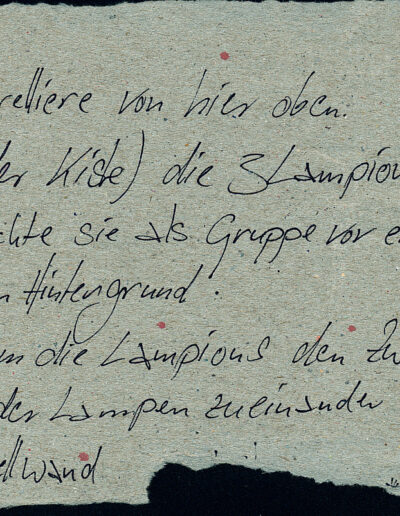 relliere von hier oben.
der Kiste) die 3 Lampion
chte sie als Gruppe vor e
n Hintergrund.
um die Lampions den Zw
der Lampen zueinander
ellwand